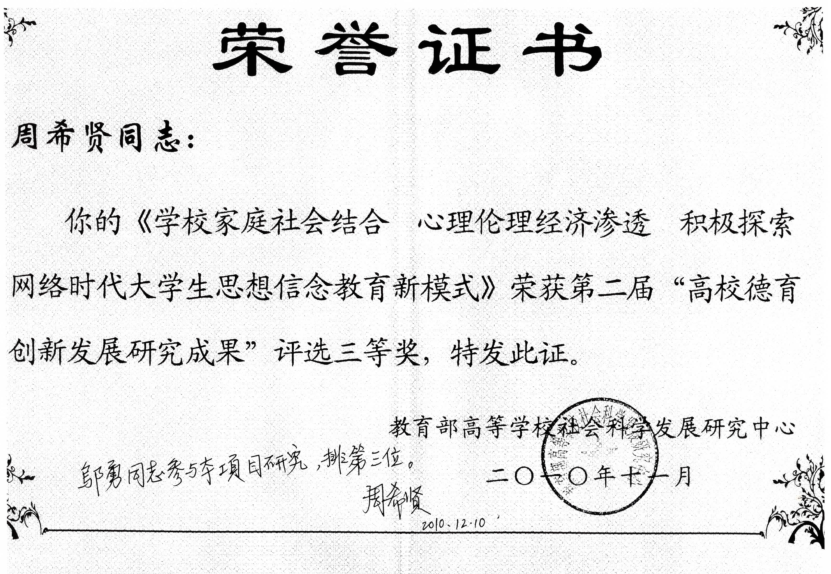 荣誉证书
周希贤同志：
你的《学校家庭社会结合　心理伦理经济渗透　积极探索
网络时代大学生思想信念教育新模式》荣获第二届“高校德育
创新发展研究成果”评选三等奖，特发此证。
教育部高等学校社会科学发展研究中心
二〇一〇年十一月
邬勇同志参与本项目研究，排第三位。
周希贤
2010.12.10